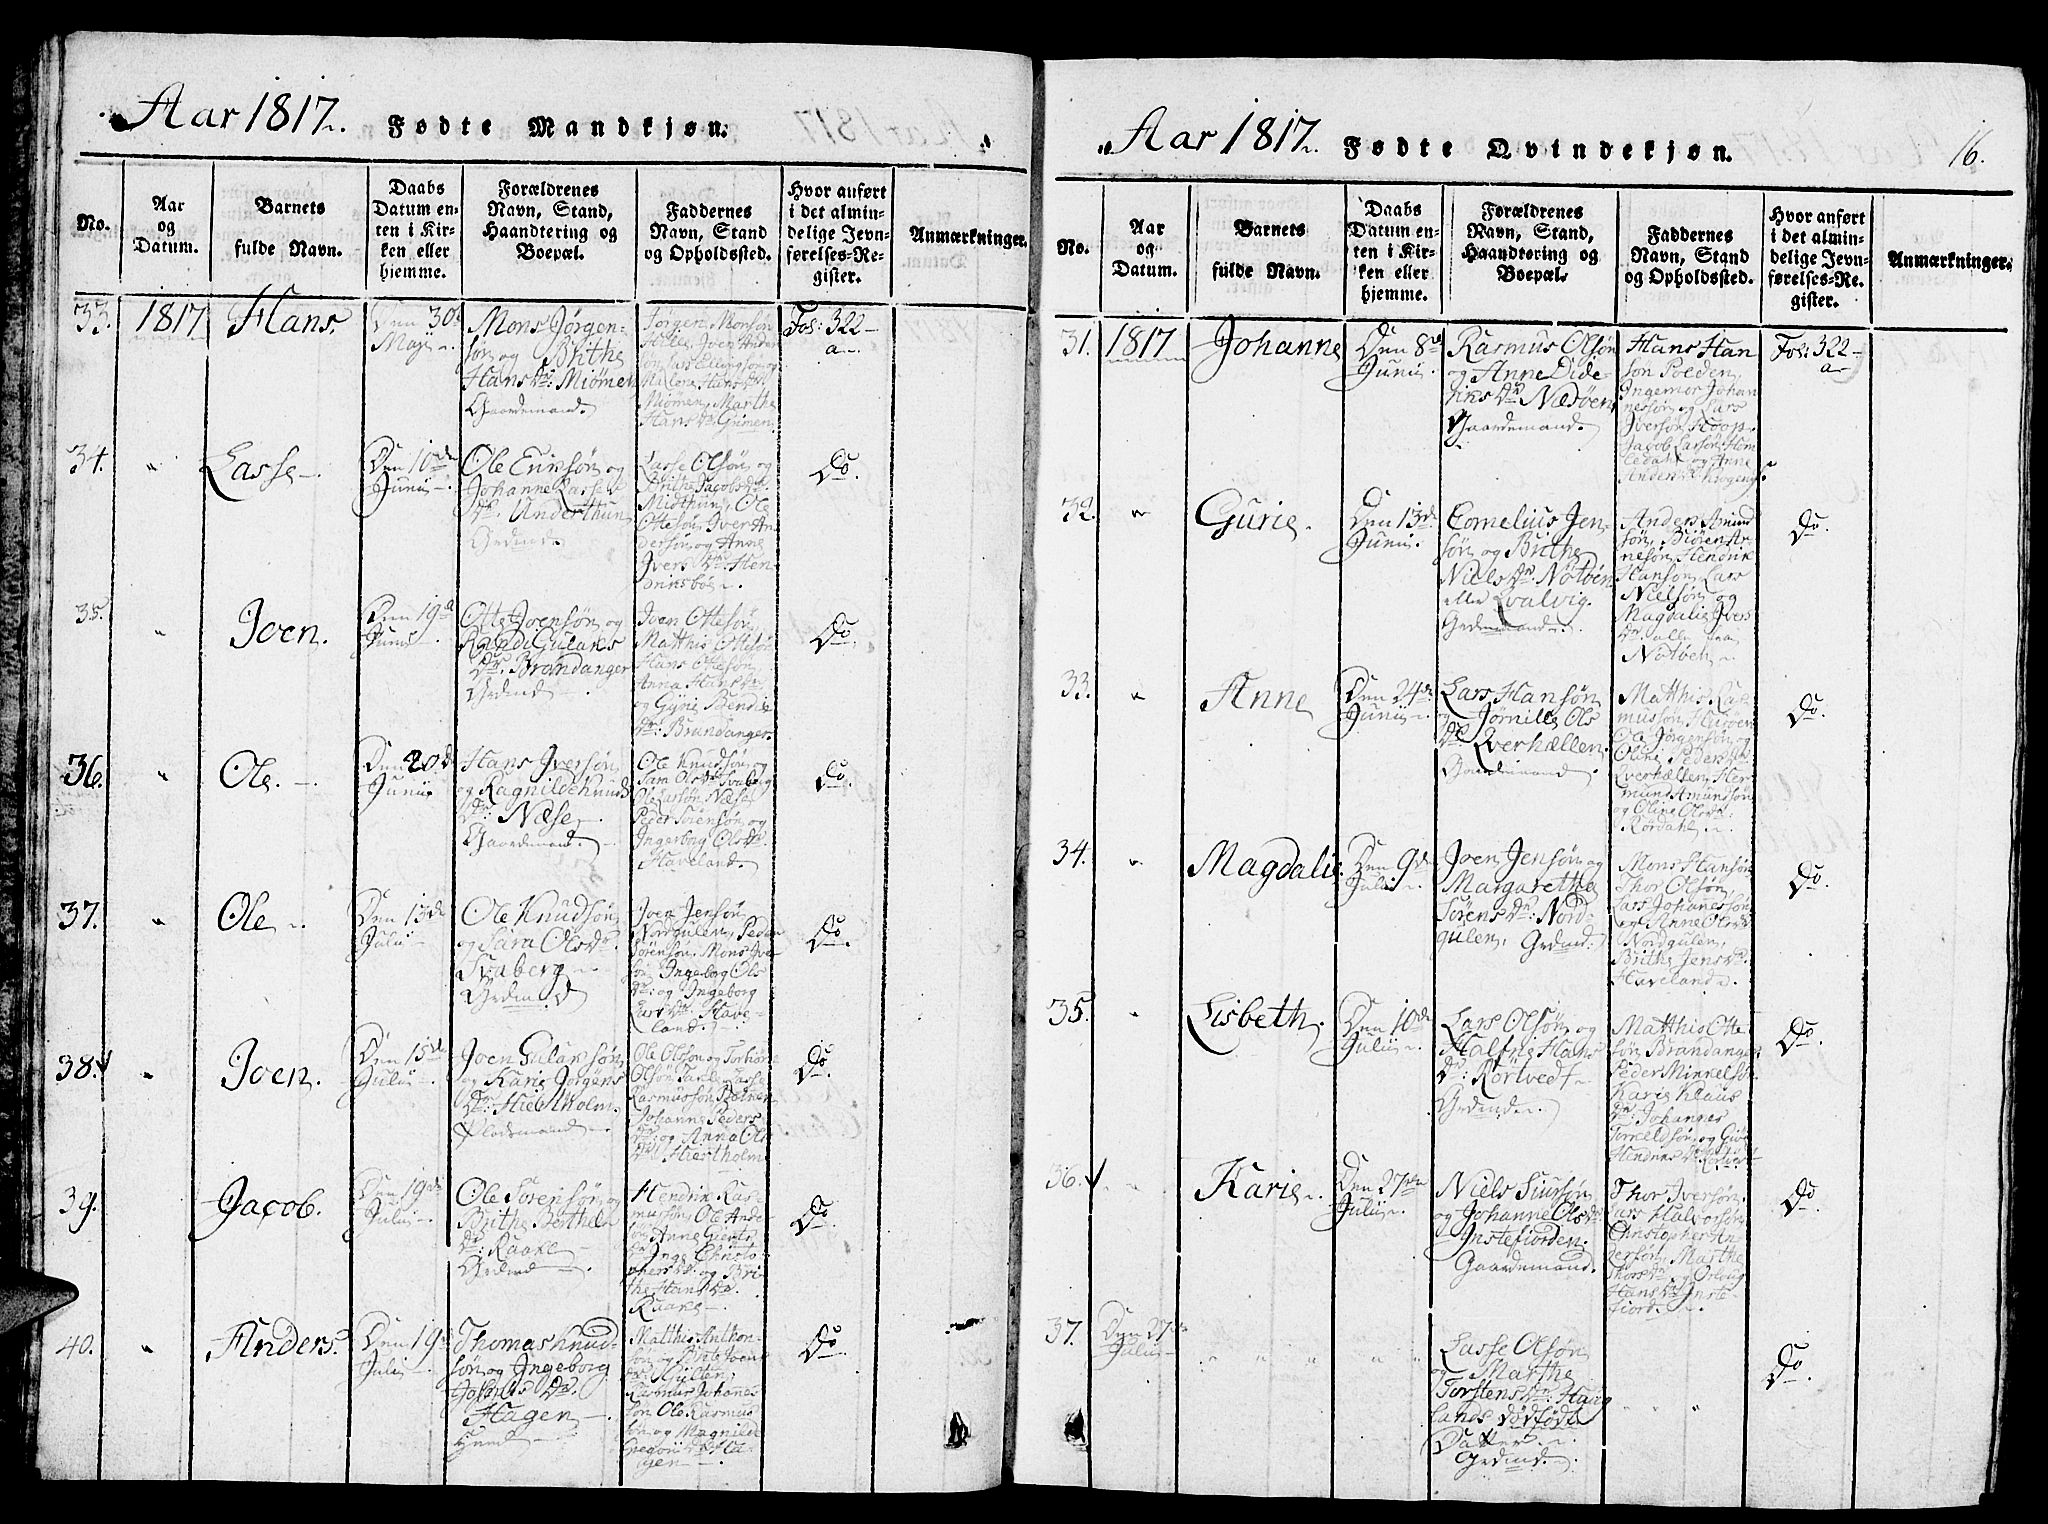 Aar 1817. Fødte Mandkjøn.
No.
Aar
og
Datum.
Barnets
fulde Navn.
Daabs
Datum en-
ten i Kir-
ken eller
hjemme.
Forældrenes
Navn, Stand,
Haandtering og
Boepæl.
Faddernes
Navn, Stand
og Opholdssted.
Hvor anført
i det almin-
delige Jevn-
førelses-Re-
gister.
Anmærkninger.
33. 1817 Hans.
Den 30
Maji
Mons Jørgen-
søn og Brithe
Hans Dr. Miömen
Gaardemand.
Jørgen Monsøn
Hans Dr.
Miömen, Marthe
Hans Dr.
Fol: 322-
a
34. " Lasse
Den 10de
Junii
Ole Erichsøn og
Johanne Lasse
Dr. Underthun
Grdmd.
Lasse Olsøn og
Brithe Jacobs Dr.
Midthun, Ole
Ottesøn, Iver An-
dersøn og Anne
Ivers Dr. Hen-
driksbøe
Do.
35. " Joen.
Den 19d
Junii
Otte Joensøn og
Randi Gulaks
Dr. Brandanger
Grdmd
Joen Ottesøn,
Matthis Ottesøn
Hans Ottesøn,
Anna Hans Dr.
og Bendix
Dr. Brandanger.
Do.
36. " Ole.
Den 20d
Junii
Hans Iversøn
og Ragnilde Knuds
Dr. Næse
Gaardemand.
Ole Knudsøn og
Ols Dr. Svaberg
Ole Larsøn Næse
Peder Sörensøn og
Ingerborg Ols Dr.
Haveland.
Do.
37. " Ole
Den 13de
Julii
Ole Knudsøn
og Sara Ols Dr.
Svaberg
Grdmd
Joen Jensøn
Nordgulen, Peder
Sørensøn, Mons Iver-
søn, Ingeborg Ols
Dr: og Ingeborg
Lars Dr. Have-
land.
Do.
38. " Joen.
Den 15de
Julii
Joen Gulaksøn,
og Karie Jørgens
Dr. Hiertholm.
Pladsmand
Ole Olsson og
Olsøn
Rasmussøn
Johanne Peders
Dr. og Anna Ols
Dr. Hiertholm
Do.
39. " Jacob.
Den 19de
Julii
Ole Sörensøn og
Brithe Berthels
Dr: Raake
Grdmd
Hendrik Ras-
mussøn, Ole Ande-
søn, Anne
Dr. Inge Christo-
phers Dr. og Bri-
the Hans Dr.
Raake
Do.
40. " Anders.
Den 19d
Julii
Thomas Knud-
søn og Ingeborg
Dr.
Hagen
Matthis Anthon-
søn og Joens
Dr.
Rasmus Johanes
søn Ole Rasmus
søn og Magnilde
Dr. Ha-
gen
Do
Aar 1817. Fødte Qvindekjøn. 16.
No.
Aar
og
Datum.
Barnets
fulde Navn.
Daabs
Datum en-
ten i Kir-
ken eller
hjemme.
Forældrenes
Navn, Stand,
Haandtering og
Boepæl.
Faddernes
Navn, Stand
og Opholdssted.
Hvor anført
i det almin-
delige Jevn-
førelses-Re-
gister.
Anmærkninger.
31. 1817 Johanne
Den 8de
Junii
Rasmus Olsøn
og Anne Dide-
riks Dr. Nædöen,
Gaardemand.
Hans Han
søn Polden,
Ingemor Johan
nessøn og Lars
Iversøn
Jacob Larsøn
og Anne
Anders Dr.
Fol: 322-
a
32. " Gurie.
Den 13d.
Junii.
Cornelius Jen-
søn og Brithe
Niels Dr. Notöen
eller Qvalvig.
Grdemand.
Anders Amund
søn, Biören Ar-
nesøn, Hendrik
Hansøn, Lars
Nielsøn og
Magdalie Ivers
Dr. alle fra
Notöen
Do.
33. " Anne
Den 24de
Junii
Lars Hansøn
og Jørnille Ols
Dr. Qverhællen.
Gaardemand
Matthis Ras-
mussøn
Ole Jørgensøn og
Oline Peders Dr.
Qverhællen, Her-
mund Amundsøn
og Oline Ols Dr.
Rørdahl
Do.
34. " Magdalie.
Den 9de
Julii
Joen Jensøn og
Margarethe
Sörens Dr: Nord-
gulen, Grdmd.
Mons Hansøn
Thor Olsøn,
Lars Johanessøn
og Anne Ols Dr.
Nordgulen,
Brithe Jens Dr.
Haveland.
Do.
35. " Lisbeth.
Den 10de
Julii
Lars Olsøn og
Halfrie Hans
Dr: Rörtvedt
Grdmd.
Matthis Otte
søn Brandanger
Peder Minkelsøn
Karie Klaus
Dr. Johannes
Torkeldsøn og
Dr. Rörtvedt
Do.
36. " Karie.
Den 27de
Julii
Niels Siursøn
og Johanne Ols Dr.
Instefiorden.
Gaardemand.
Thor Iversøn.
Lars Halvorsøn,
Christopher An-
dersøn, Marthe
Thors Dr. og
Hans Dr. Inste-
fiord.
Do.
37. Den 27de
Julii
" " " " "
Lasse Olsøn
og Marthe
Torstens Dr. Haug
lands dödfödte
Datter.
Grdmd.
" " "
Do.